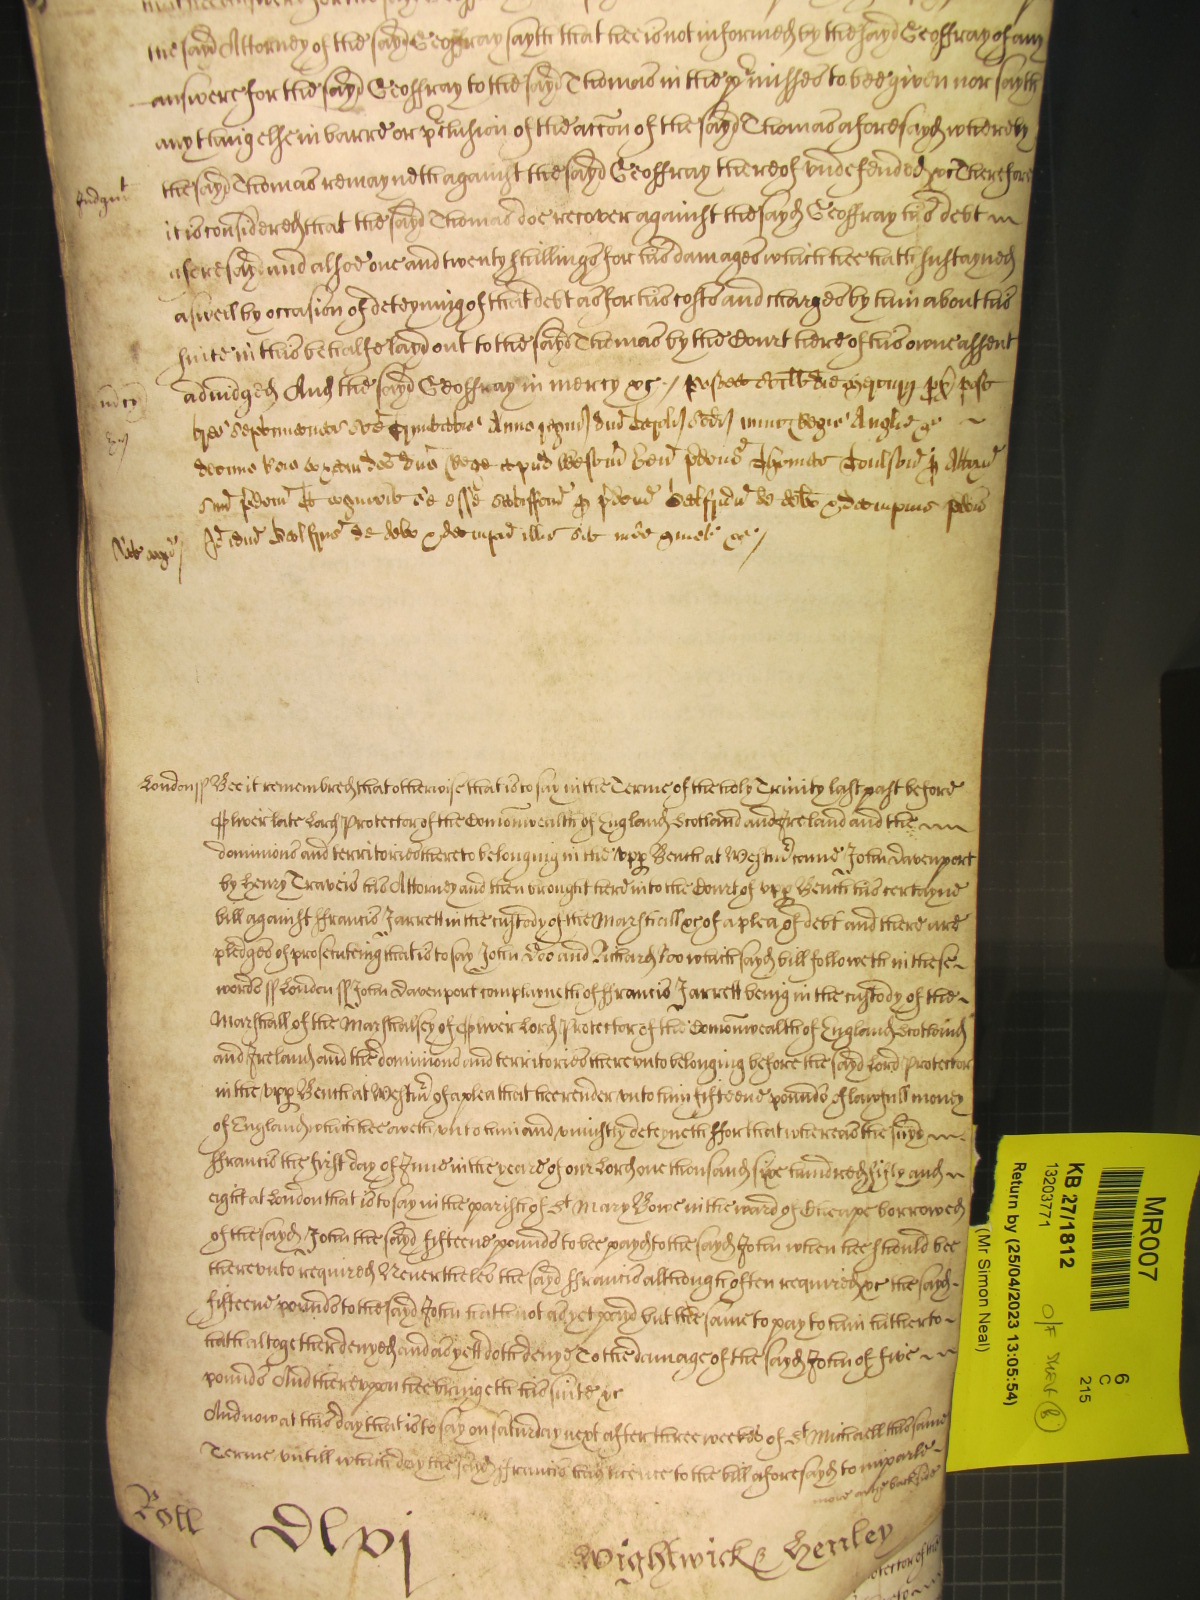 the sayd Attorney of the sayd Geoffray sayth that hee is not informed by the sayd Geoffray of any
answere for the sayd Geoffray to the sayd Thomas in the p'misses to bee given nor sayth
any thing else in barre or p'clusion of the accon of the sayd Thomas aforesayd whereby
Judgmt
the sayd Thomas remayneth against the sayd Geoffray thereof undefended &c Therefore
it is considered that the sayd Thomas doe recover against the sayd Geoffray his debt
aforesayd and alsoe one and twenty shillings for his damages which hee hath sustayned
aswell by occasion of deteyning of that debt as for his costs and charges by him about his
suite in this behalfe layd out to the sayd Thomas by the Court here of his owne assent
mercy
adiudged And the sayd Geoffray in mercy &c /
Anno regni dni Caroli scdi nunc Regis Anglie &c
decimo coram dco dno Rege apud Westm ven pdcus Thomas Coulson p Attorn
suu pdcm Et cognovit se esse satisfcm p pdcm Galfridu de debo & dampnis pdcis
Io idem Galfrus de debo & dampnis illis sit inde quiet &c /
London ss Bee it remembred that otherwise that is to say in the Terme of the holy Trinity last past before
Oliver late Lord Protector of the Comonwealth of England Scotland and Ireland and the
dominions and territories thereto belonging in the upp Bench at Westmr came John Davenport
by Henry Travers his Attorney and then brought here into the Court of upp Bench his certayne
bill against Francis Jarrett in the custody of the Marshall &c of a plea of debt and there are
pledges of prosecuteing that is to say John Doo and Richard Roo which sayd bill followeth in these
words ss London ss John Davenport complayneth of Francis Jarrett being in the custody of the
Marshall of the Marshalsey of Oliver Lord Protector of the Comonwealth of England Scotland
and Ireland and the dominions and territories thereunto belonging before the sayd Lord Protector
in the upp Bench at Westmr of a plea that hee render unto him fifteene pounds of lawfull money
of England which hee oweth unto him and uniustly deteyneth ffor that whereas the sayd
Francis the first day of June in the yeare of our Lord one thousand sixe hundred fifty and
eight at London that is to say in the parish of St Mary Bowe in the ward of Cheape borrowed
of the sayd John the sayd fifteene pounds to bee payd to the sayd John when hee should bee
thereunto required Neverthelès the sayd Francis although often required &c the sayd
fifteene pounds to the sayd John hath not as yet payd but the same to pay to him hitherto
hath altogether denyed and as yett doth denye To the damage of the sayd John of five
pounds And thereupon hee bringeth his suite &c
And now at this day that is to say on Saturday next after three weekes of St Michaell this same
Terme untill which day the sayd Francis had licence to the bill aforesayd to imparle
more on the backside
Roll Dlvj Wightwicke Henley
MR007
6
C
215
KB 27/1812
13203771
Return by (25/04/2023 13:05:54)
(Mr Simon Neal)